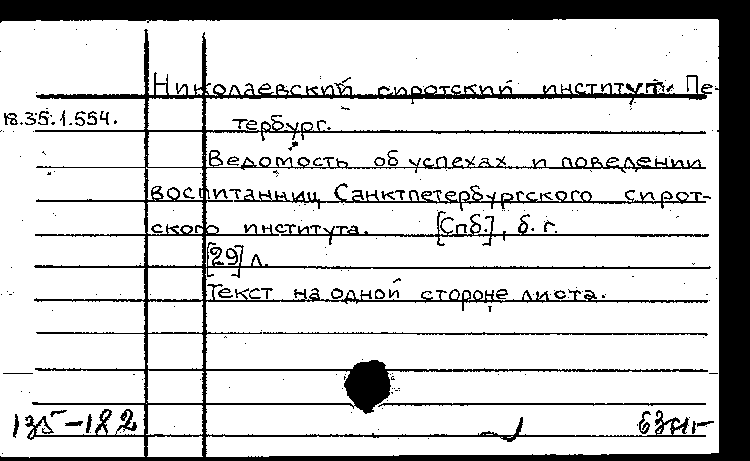 Николаевский сиротский институт. Пе-
18.35.1.554.
тербург.
Ведомость об успехах и поведении
воспитанниц Санктпетербургского сирот-
ского института. [Спб.], б. г.
[29] л.
Текст на одной стороне листа.
135-122